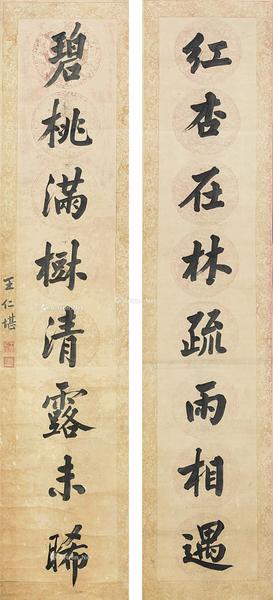 红杏在林疏雨相遇
碧桃满樹清露未晞
王仁堪